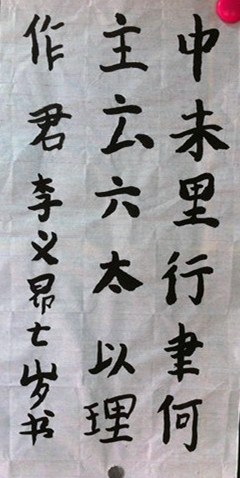 中未里行聿何
主六太以理
作君李义昂七岁书